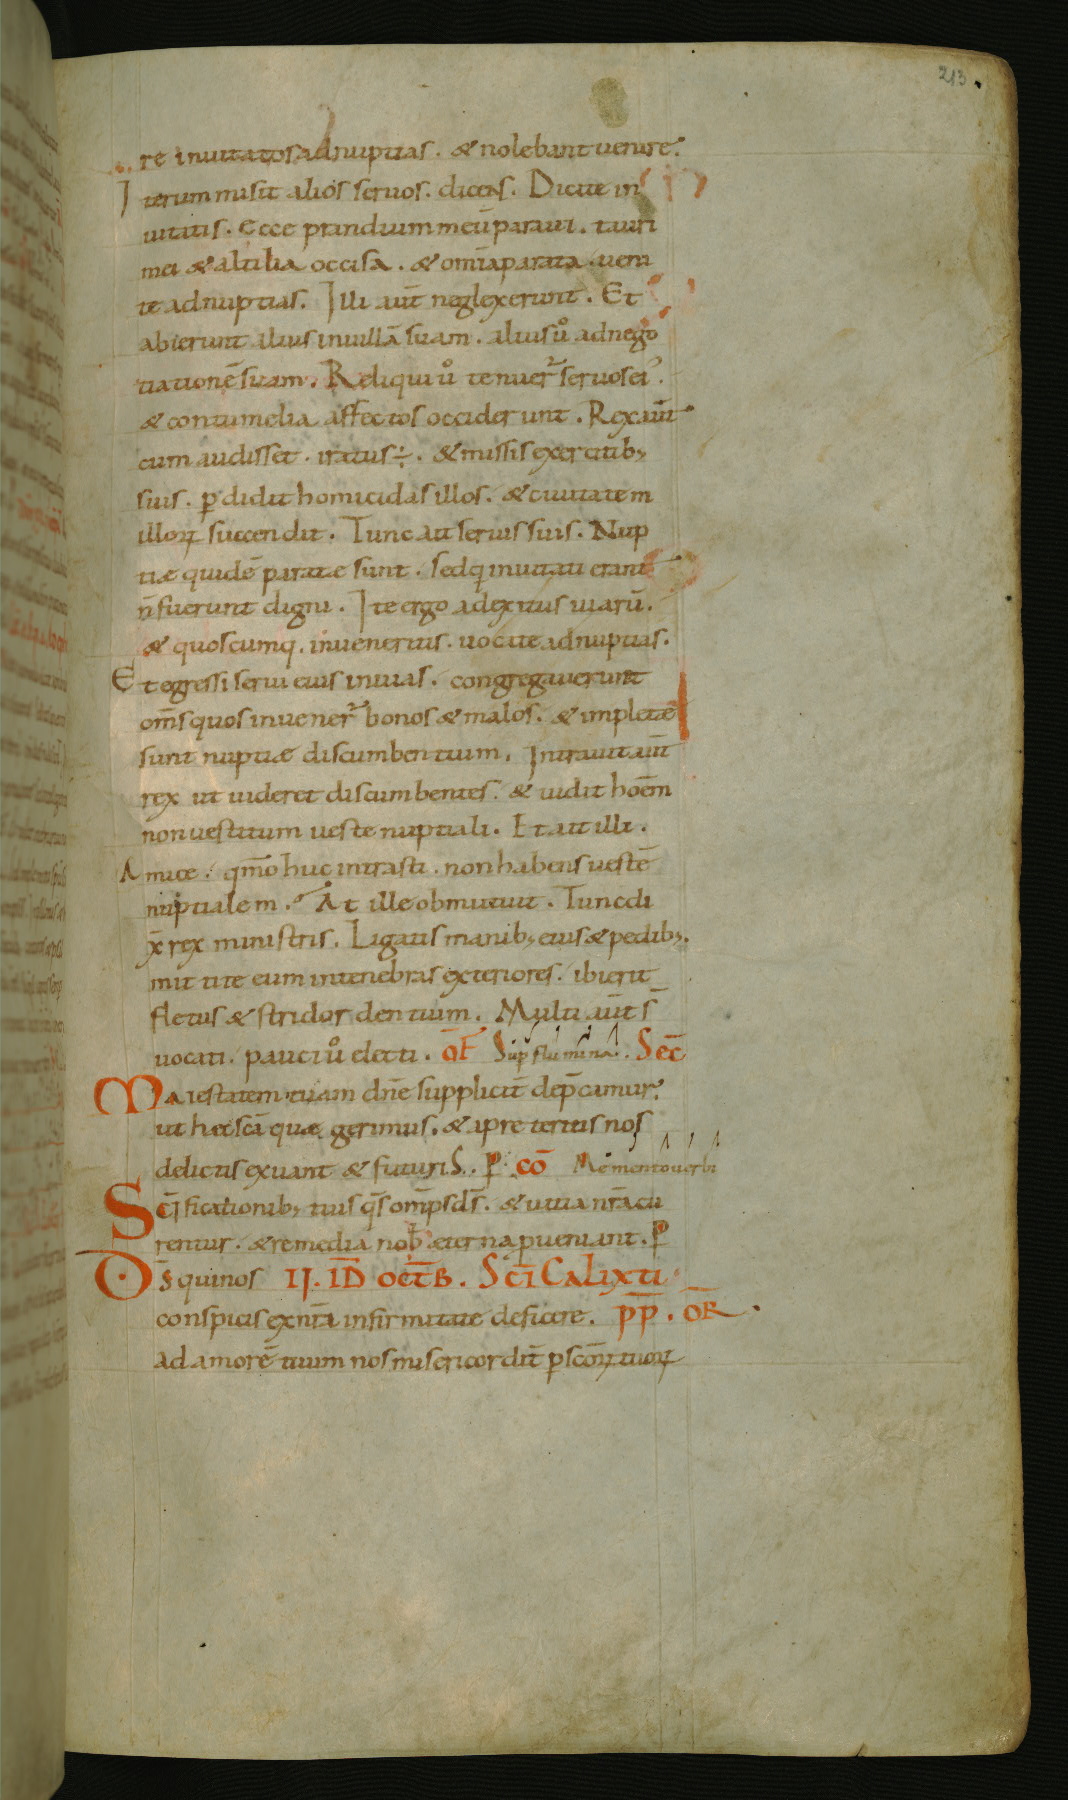 213
re inuitatos adnuptias. & nolebant uenire.
Iterum misit alios seruos. dicens. Dicite in
uitatis. Ecce prandium meū paraui. tauri
mei & altilia occisa. & omīa parata. ueni
te ad nuptias. Illi aūt neglexerunt. Et
abierunt alius inuillā suam. alius ů adnego
tiationē suam. Reliqui ů tenuer̄ seruos ei'.
& contumelia affectos occiderunt. Rex aūt
cum audisset. iratus ÷. & missis exercitib;
suis. ꝑdidit homicidas illos. & ciuitatem
illoꝝ succendit. Tunc ait seruis suis. Nup
tiæ quidē paratæ sunt. sed q̇ inuitati erant
n̄ fuerunt digni. Ite ergo ad exitus uiarū.
& quoscumq. inueneritis. uocate adnuptias.
Et egressi serui eius inuias. congregauerunt
om̄s quos inuener̄ bonos & malos. & impletæ
sunt nuptiæ discumbentium. Intrauit aūt
rex ut uideret discumbentes. & uidit hoēm
non uestitum ueste nuptiali. Et ait illi.
Amice. qm̄o huc intrasti. non habens uestē
nuptialem. At ille obmutuit. Tunc di
x̄ rex ministris. Ligatis manib; eius & pedib;.
mittite eum intenebras exteriores. ibi erit
fletus & stridor dentium. Multi aūt s̄
uocati. pauci ů electi. OF Sup flumina. SEC̄
Maiestatem tuam dn̄e suppliciť dep̄camur.
ut hec sc̄a quæ gerimus. & apreteritis nos
delictis exuant & futuris. P. CO Memento uerbi
Sc̄ificationib; tuis q̄s omp̄s ds̄. & uitia nr̄a cu
rentur. & remedia nob̄ æterna ꝓueniant. P
Ds̄ qui nos II. ID OCTB. SCĪ CALIXTI
conspicis ex nr̄a infirmitate deficere. PP. OR
ad amorē tuum nos misericordit̄ ꝑ sc̄oꝝ tuoꝝ